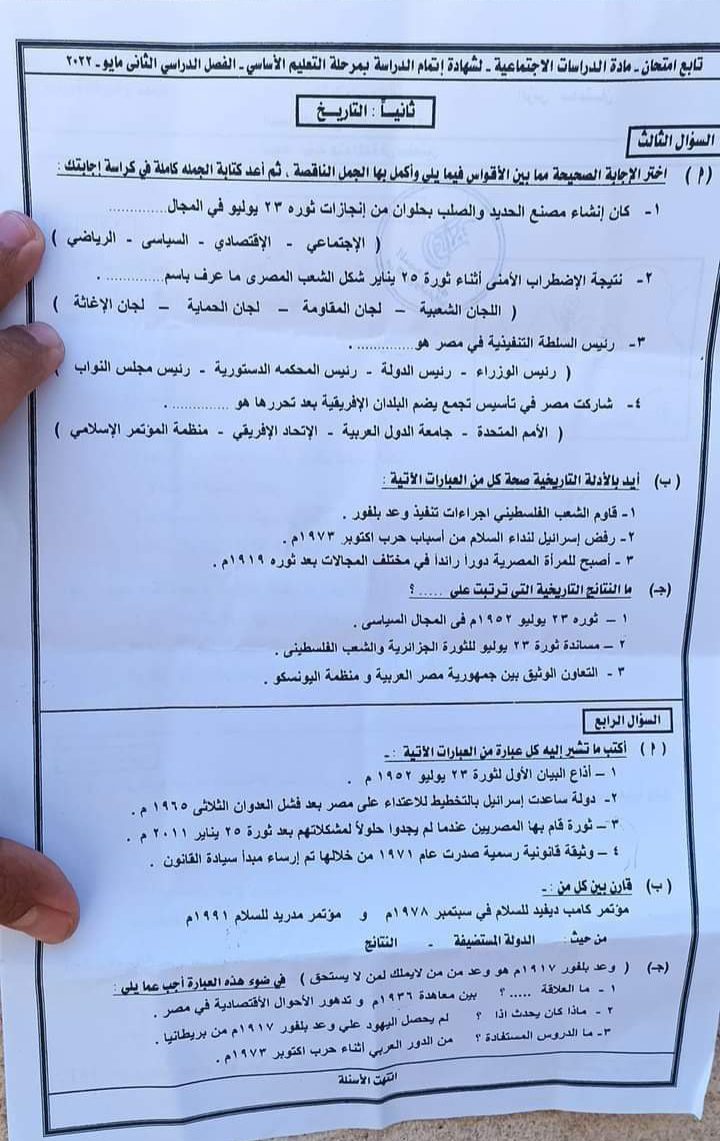 تابع امتحان ـ مادة الدراسات الاجتماعية ـ لشهادة إتمام الدراسة بمرحلة التعليم الأساسي ـ الفصل الدراسي الثانى مايو ـ ٢٠٢٢
ثانياً : التاريخ
السؤال الثالث
(أ) اختر الإجابة الصحيحة مما بين الأقواس فيما يلي وأكمل بها الجمل الناقصة ، ثم أعد كتابة الجمله كاملة في كراسة إجابتك :
١- كان إنشاء مصنع الحديد والصلب بحلوان من إنجازات ثوره ٢٣ يوليو في المجال..........
( الإجتماعي - الإقتصادي - السياسى - الرياضي )
٢- نتيجة الإضطراب الأمنى أثناء ثورة ٢٥ يناير شكل الشعب المصرى ما عرف باسم............ .
( اللجان الشعبية – لجان المقاومة – لجان الحماية – لجان الإغاثة )
٣- رئيس السلطة التنفيذية في مصر هو............ .
( رئيس الوزراء - رئيس الدولة - رئيس المحكمه الدستورية - رئيس مجلس النواب )
٤- شاركت مصر في تأسيس تجمع يضم البلدان الإفريقية بعد تحررها هو ............ .
( الأمم المتحدة - جامعة الدول العربية - الإتحاد الإفريقي - منظمة المؤتمر الإسلامي )
(ب) أيد بالأدلة التاريخية صحة كل من العبارات الأتية :
١- قاوم الشعب الفلسطيني اجراءات تنفيذ وعد بلفور .
٢- رفض إسرائيل لنداء السلام من أسباب حرب اكتوبر ١٩٧٣م .
٣ - أصبح للمرأة المصرية دوراً رائداً في مختلف المجالات بعد ثوره ١٩١٩م .
(جـ) ما النتائج التاريخية التى ترتبت على ..... ؟
١ – ثوره ٢٣ يوليو ١٩٥٢م فى المجال السياسى .
٢ – مساندة ثورة ٢٣ يوليو للثورة الجزائرية والشعب الفلسطينى .
٣ - التعاون الوثيق بين جمهورية مصر العربية و منظمة اليونسكو .
السؤال الرابع
(أ) أكتب ما تشير إليه كل عبارة من العبارات الأتية :ـ
١ – أذاع البيان الأول لثورة ٢٣ يوليو ١٩٥٢ م .
٢- دولة ساعدت إسرائيل بالتخطيط للاعتداء على مصر بعد فشل العدوان الثلاثى ١٩٦٥ م .
٣ – ثورة قام بها المصريين عندما لم يجدوا حلولاً لمشكلاتهم بعد ثورة ٢٥ يناير ٢٠١١ م .
٤ – وثيقة قانونية رسمية صدرت عام ١٩٧١ من خلالها تم إرساء مبدأ سيادة القانون .
(ب) قارن بين كل من :ـ
مؤتمر كامب ديفيد للسلام في سبتمبر ١٩٧٨م و مؤتمر مدريد للسلام ١٩٩١م
من حيث : الدولة المستضيفة - النتائج
(جـ) ( وعد بلفور ١٩١٧م هو وعد من من لايملك لمن لا يستحق ) في ضوء هذه العبارة أجب عما يلي :
١ - ما العلاقة ..... ؟ بين معاهدة ١٩٣٦م و تدهور الأحوال الأقتصادية في مصر .
٢ - ماذا كان يحدث اذا ؟ لم يحصل اليهود علي وعد بلفور ١٩١٧م من بريطانيا .
٣- ما الدروس المستفادة ؟ من الدور العربي أثناء حرب اكتوبر ١٩٧٣م .
انتهت الأسئلة